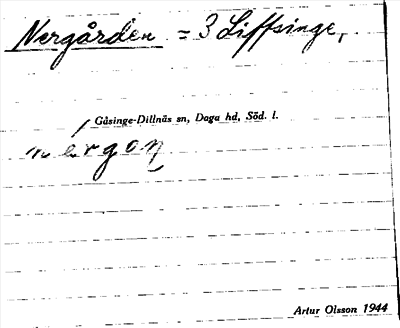 Nergården = 3 Liffsinge,
Gåsinge-Dillnäs sn, Daga hd, Söd. l.
nérgoṇ
Artur Olsson 1944